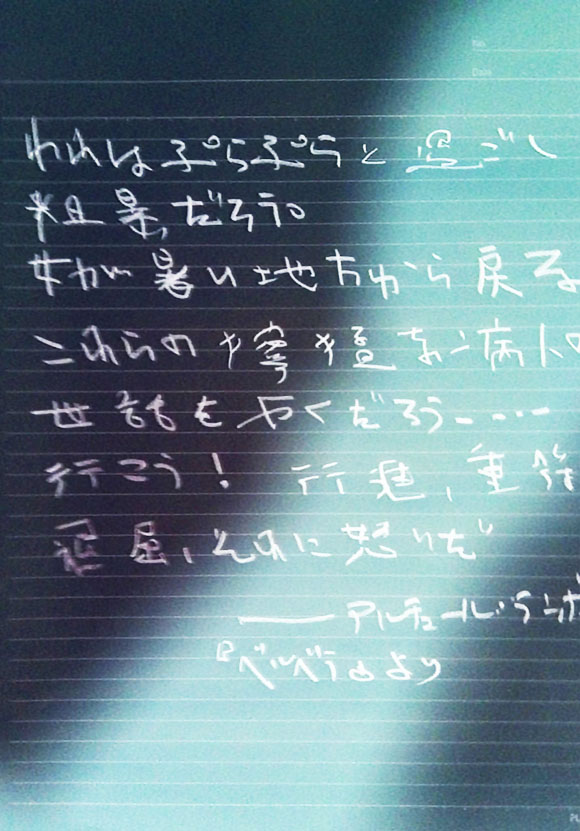 No.
Date
われはぷらぷらと過ごし
粗暴だろう。
女が暑い地方から戻る
これらの獰猛なご病人の
世話をやくだろう……
行こう! 行進、重
退屈、それに怒りだ
――アルチュール・ランボ
より